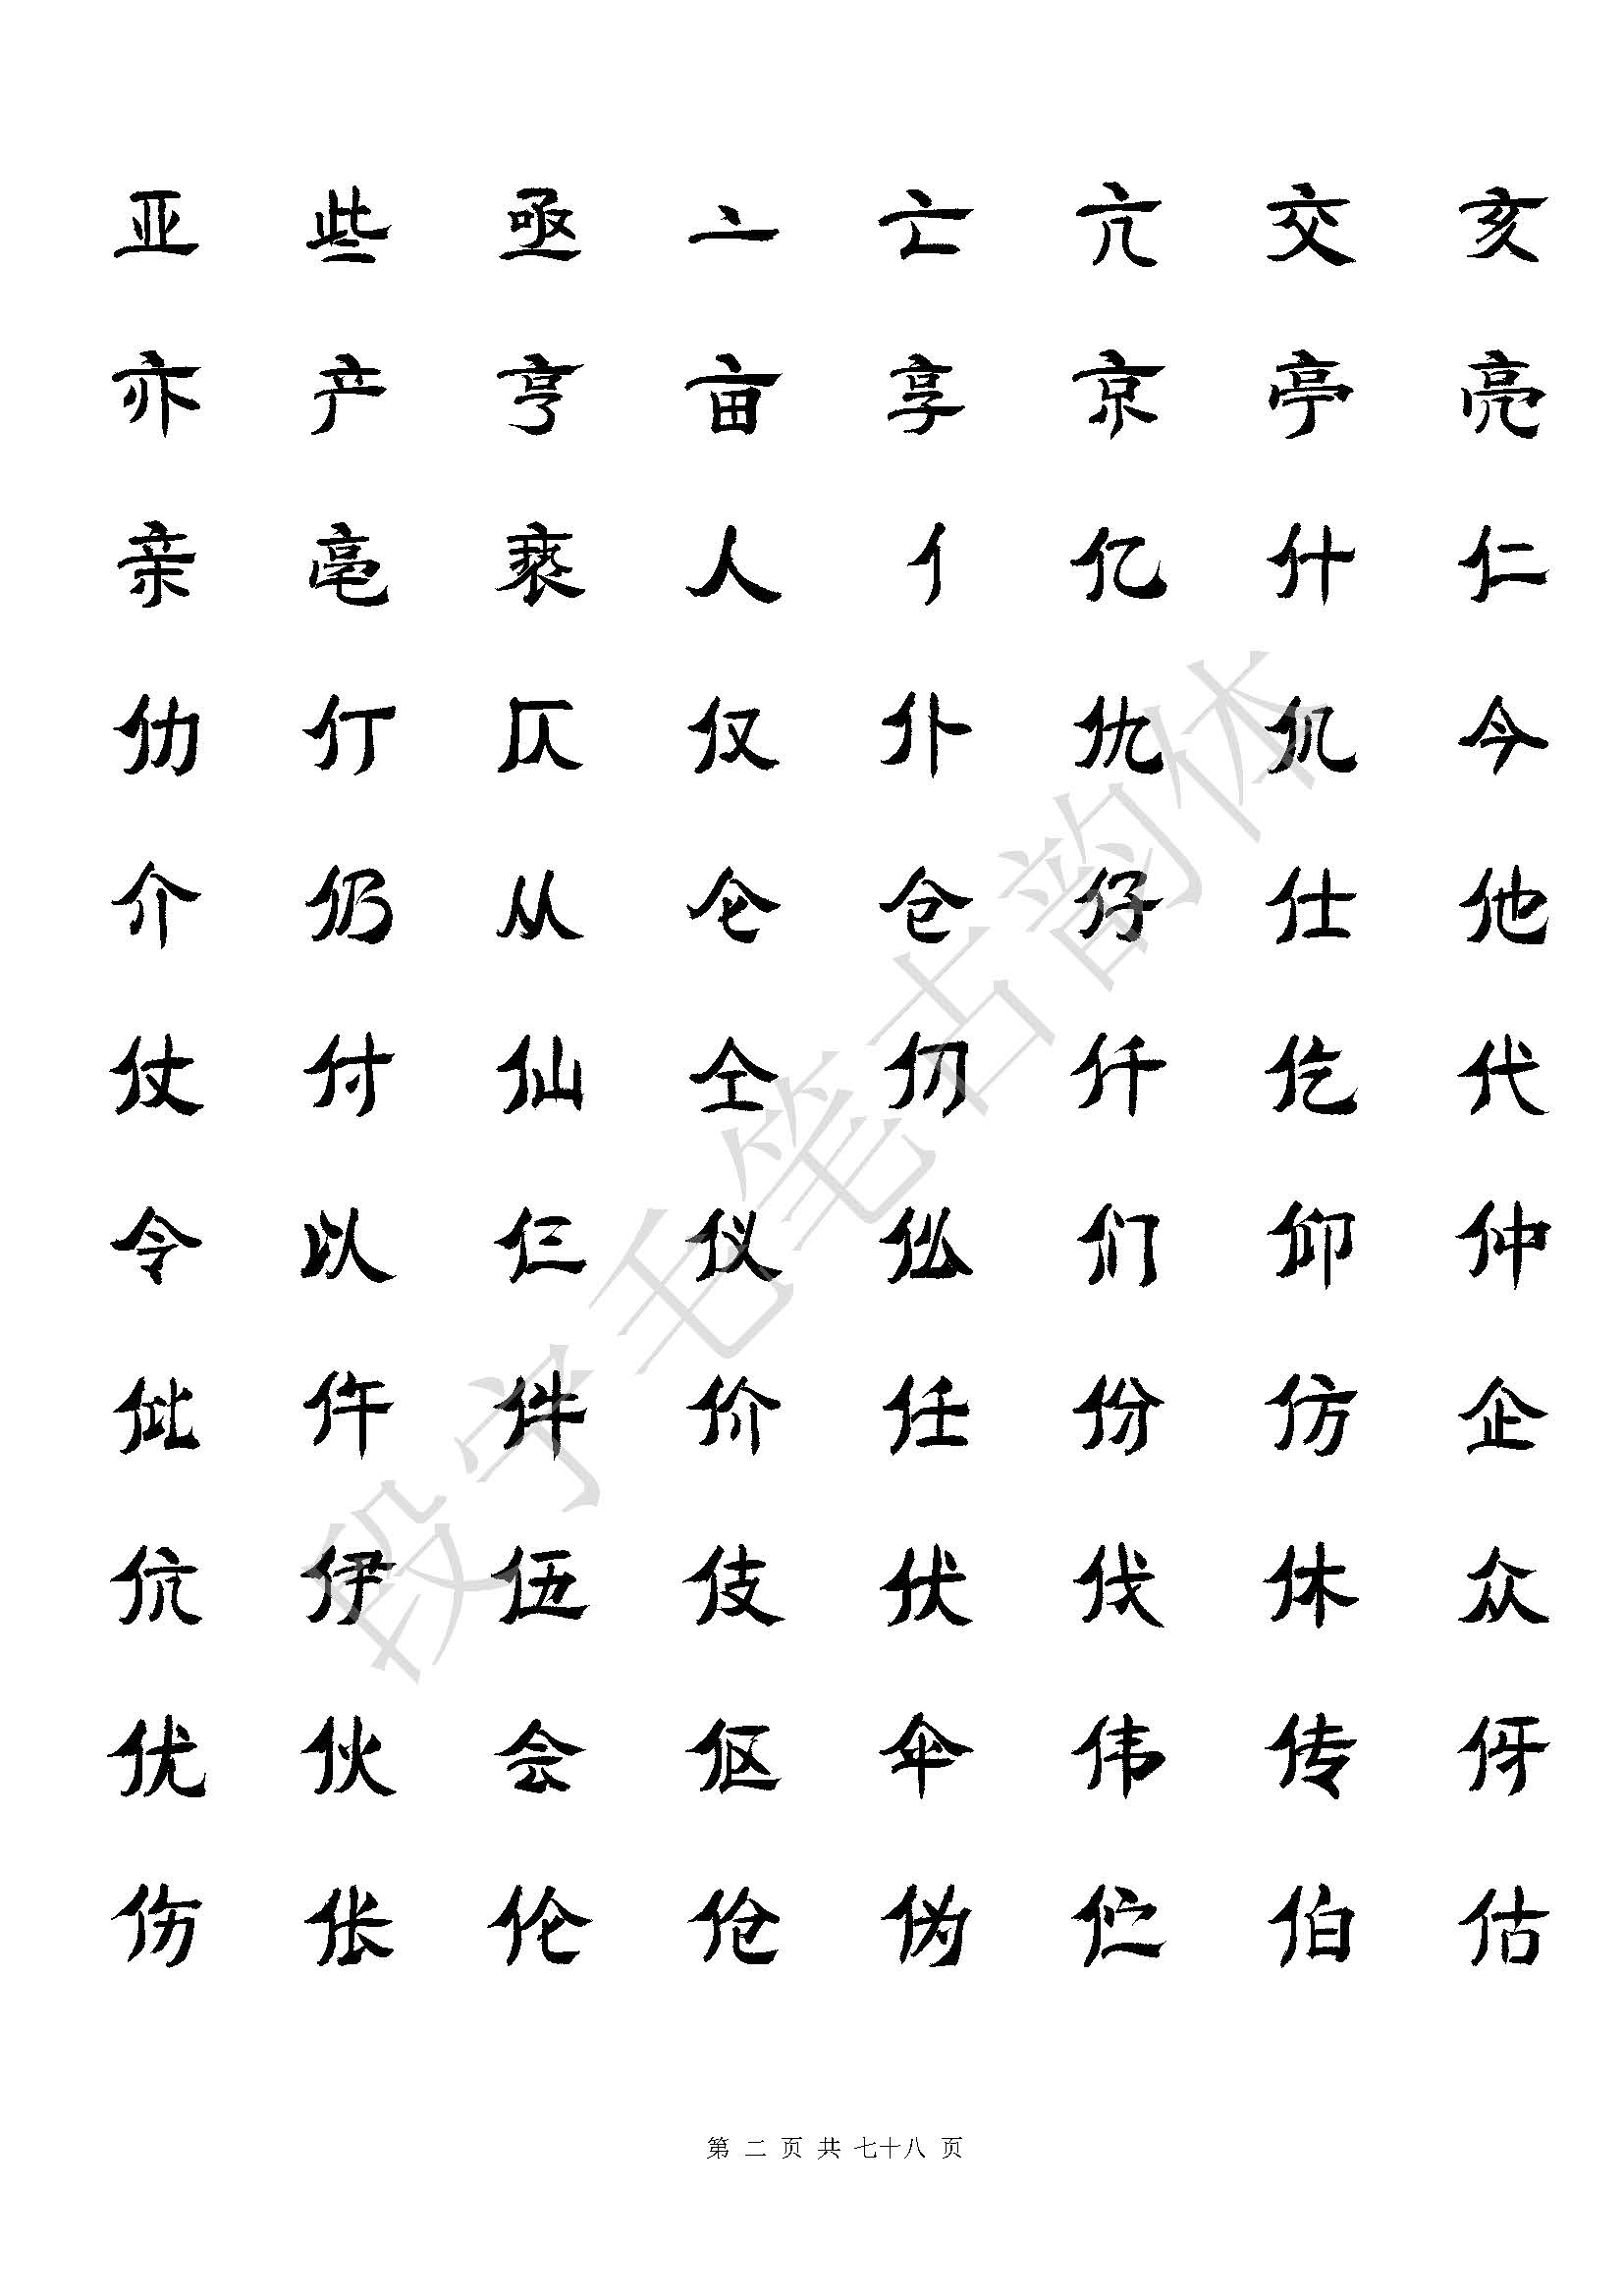 亚 些 亟 亠 亡 亢 交 亥
亦 产 亨 亩 享 京 亭 亮
亲 亳 亵 人 亻 亿 什 仁
仂 仃 仄 仅 仆 仇 仉 今
介 仍 从 仑 仓 仔 仕 他
仗 付 仙 仝 仞 仟 仡 代
令 以 仨 仪 仫 们 仰 仲
仳 仵 件 价 任 份 仿 企
伉 伊 伍 伎 伏 伐 休 众
优 伙 会 伛 伞 伟 传 伢
伤 伥 伦 伧 伪 伫 伯 估
段宁毛笔古韵体
第 二 页 共 七十八 页